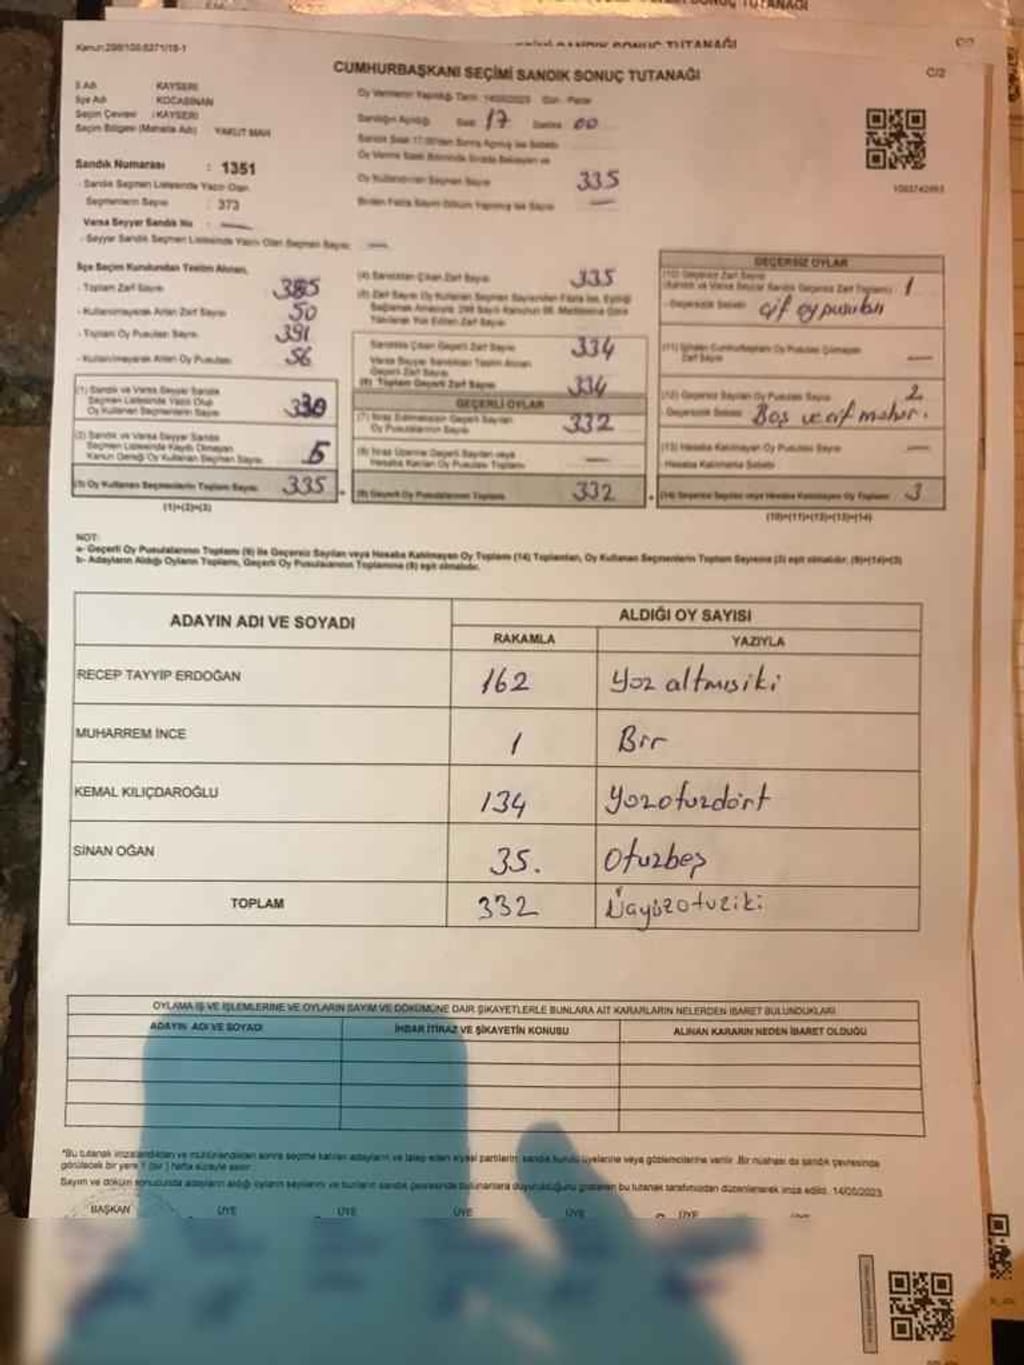 SONUÇ TUTANAĞI
SANDIK SONUÇ TUTANAĞI
C/2
Kanun:298/100.6271/18-1
CUMHURBAŞKANI SEÇİMİ SANDIK SONUÇ TUTANAĞI
C/2
İl Adı KAYSERİ
İlçe Adı : KOCASİNAN
Seçim Çevresi : KAYSERİ
Seçim Bölgesi (Mahalle Adı) YAKUT MAH
Oy Vermenin Yapıldığı Tarih 14/05/2023 Gün : Pazar
Sandığın Açıldığı Saat 17 Dakika 00
Sandık Numarası : 1351
- Sandık Seçmen Listesinde Yazılı Olan
Seçmenlerin Sayısı : 373
Varsa Seyyar Sandık No : —
- Seyyar Sandık Seçmen Listesinde Yazılı Olan Seçmen Sayısı —
Oy Kullanan Seçmen Sayısı 335
Birden Fazla Sayım Döküm Yapılmış İse Sayısı —
İlçe Seçim Kurulundan Teslim Alınan,
- Toplam Zarf Sayısı 385
- Kullanılmayarak Artan Zarf Sayısı 50
- Toplam Oy Pusulası Sayısı 391
- Kullanılmayarak Artan Oy Pusulası 56
(1) Sandık ve Varsa Seyyar Sandık
Seçmen Listesinde Yazılı Olup
Oy Kullanan Seçmenlerin Sayısı 330
(2) Sandık ve Varsa Seyyar Sandık
Seçmen Listesinde Kayıtlı Olmayan
Kanun Gereği Oy Kullanan Seçmen Sayısı 5
(3) Oy Kullanan Seçmenlerin Toplam Sayısı 335
(1)+(2)=(3)
(4) Sandıktan Çıkan Zarf Sayısı 335
Sandıkta Çıkan Geçerli Zarf Sayısı 334
Varsa Seyyar Sandıktan Teslim Alınan
Geçerli Zarf Sayısı
(6) Toplam Geçerli Zarf Sayısı 334
GEÇERLİ OYLAR
(7) İtiraz Edilmeksizin Geçerli Sayılan
Oy Pusulalarının Sayısı 332
(8) İtiraz Üzerine Geçerli Sayılan veya
Hesaba Katılan Oy Pusulası Toplamı —
(9) Geçerli Oy Pusulalarının Toplamı 332
GEÇERSİZ OYLAR
(10) Geçersiz Zarf Sayısı 1
- Geçersizlik Sebebi çift oy pusulası
—
(12) Geçersiz Sayılan Oy Pusulası Sayısı 2
- Geçersizlik Sebebi Boş ve çift mühür.
(13) Hesaba Katılmayan Oy Pusulası Sayısı —
- Hesaba Katılmama Sebebi
(14) Geçersiz Sayılan veya Hesaba Katılmayan Oy Toplamı 3
(10)+(11)+(12)+(13)=(14)
NOT:
a- Geçerli Oy Pusulalarının Toplamı (9) ile Geçersiz Sayılan veya Hesaba Katılmayan Oy Toplamı (14) Toplamları, Oy Kullanan Seçmenlerin Toplam Sayısına (3) eşit olmalıdır. (9)+(14)=(3)
b- Adayların Aldığı Oyların Toplamı, Geçerli Oy Pusulalarının Toplamına (9) eşit olmalıdır.
ADAYIN ADI VE SOYADI
ALDIĞI OY SAYISI
RAKAMLA YAZIYLA
RECEP TAYYİP ERDOĞAN 162 Yüz altmışiki
MUHARREM İNCE 1 Bir
KEMAL KILIÇDAROĞLU 134 Yüzotuzdört
SİNAN OĞAN 35. Otuzbeş
TOPLAM 332 Üçyüzotuziki
OYLAMA İŞ VE İŞLEMLERİNE VE OYLARIN SAYIM VE DÖKÜMÜNE DAİR ŞİKAYETLERLE BUNLARA AİT KARARLARIN NELERDEN İBARET BULUNDUKLARI
ADAYIN ADI VE SOYADI İHBAR İTİRAZ VE ŞİKAYETİN KONUSU ALINAN KARARIN NEDEN İBARET OLDUĞU
*Bu tutanak imzalandıktan ve mühürlendikten sonra seçime katılan adayların ve talep eden siyasi partilerin sandık kurulu üyelerine veya gözlemcilerine verilir. Bir nüshası da sandık çevresinde
görülecek bir yere 1 (bir) hafta süreyle asılır.
Sayım ve döküm sonucunda adayların aldığı oyların sayılarını ve bunların sandık çevresinde bulunanlara duyurulduğunu gösteren bu tutanak tarafımızdan düzenlenerek imza edildi. 14/05/2023
BAŞKAN ÜYE ÜYE ÜYE ÜYE ÜYE